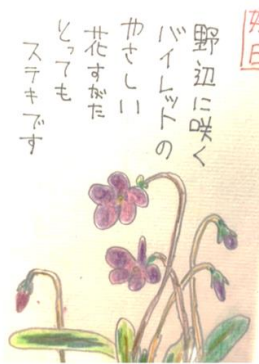 野辺に咲く
バイレットの
やさしい
花すがた
とっても
ステキです